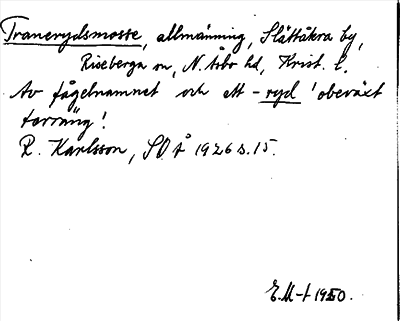 Tranerydsmosse, allmänning, Slättåkra by,
Riseberga sn, N. Åsbo hd, Krist. l.
Av fågelnamnet och ett -ryd 'obeväxt
terräng'.
R. Karlsson, SOÅ 1926 s. 15.
E.M-t 1950.